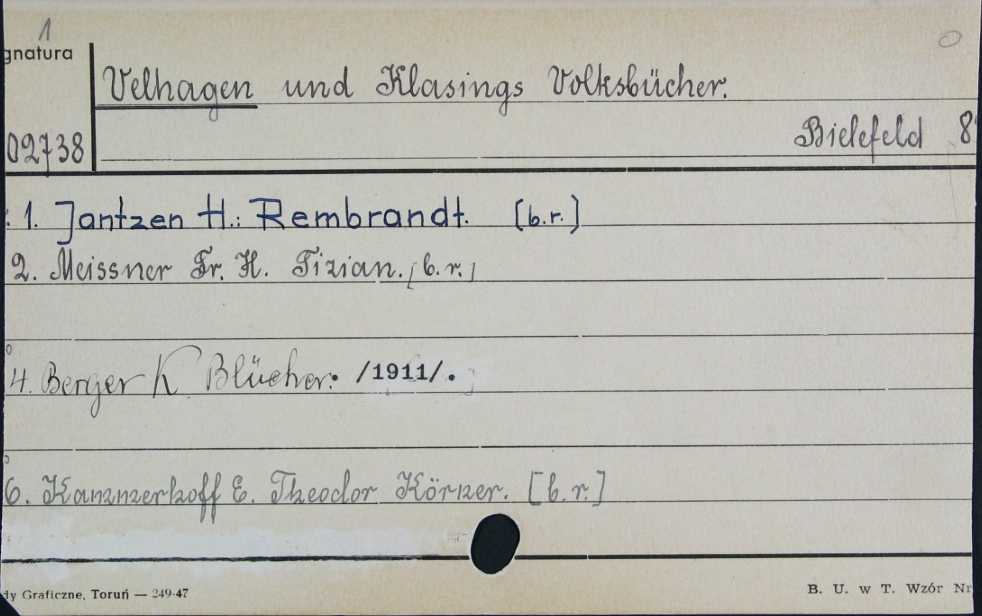 1
gnatura
Velhagen und Klasings Volksbücher.
02738
Bielefeld 8°
1. Jantzen H.: Rembrandt. [b.r.]
2. Meissner Fr. H. Tizian. [b.r.]
4. Berger K Blücher. /1911/.
6. Kammerhoff E. Theodor Körner. [b.r.]
dy Graficzne, Toruń — 249-47
B. U. w T. Wzór Nr